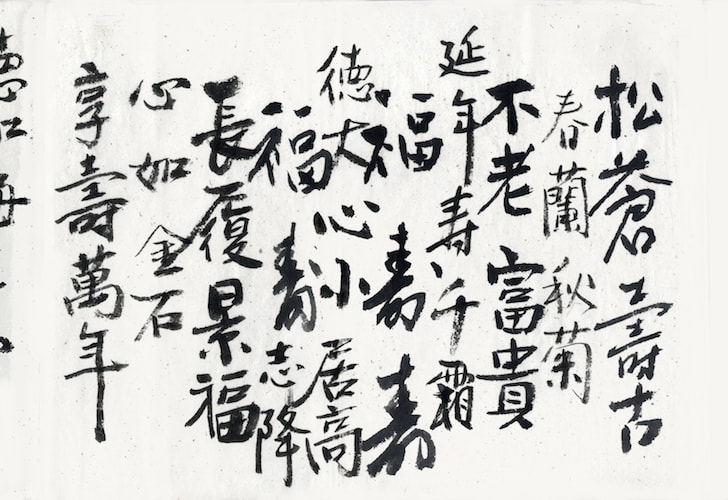 松蒼壽古
春蘭秋菊
不老富貴
延年寿千霜
福寿寿
徳大心小居高
福寿志降
長履景福
心如金石
享壽萬年